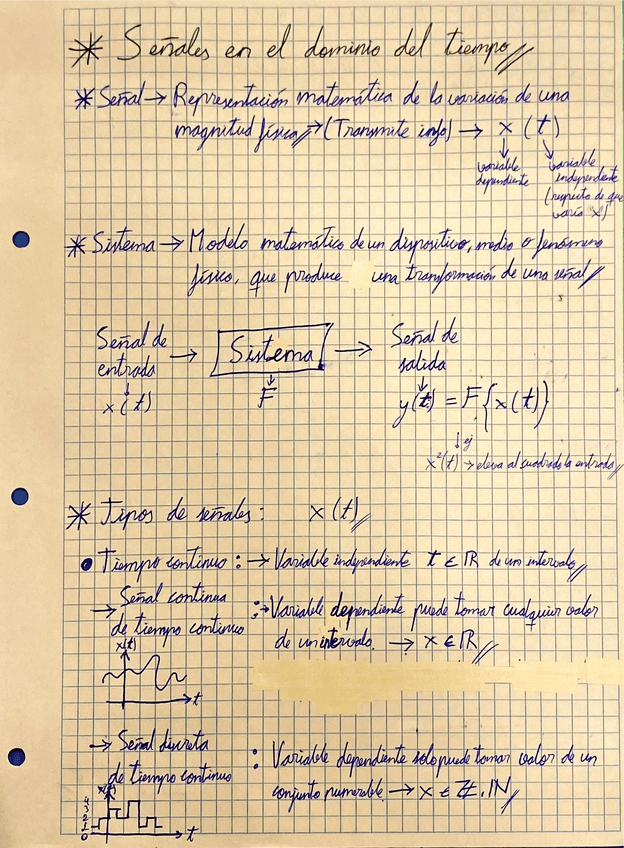 * Señales en el dominio del tiempo //
* Señal → Representación matemática de la variación de una
magnitud física // → (Transmite info) → x (t)
variable dependiente
variable independiente (respecto de que varía x)
* Sistema → Modelo matemático de un dispositivo, medio o fenómeno
físico, que produce una transformación de una señal //
Señal de entrada → Sistema → Señal de salida
x(t) F y(t) = F{x(t)}
↓ ej
x²(t) → eleva al cuadrado la entrada //
* Tipos de señales: x(t) //
• Tiempo continuo: → Variable independiente t ∈ ℝ de un intervalo //
→ Señal continua
de tiempo continuo
: → Variable dependiente puede tomar cualquier valor
de un intervalo. → x ∈ ℝ //
x(t)
t
→ Señal discreta
de tiempo continuo
: Variable dependiente solo puede tomar valor de un
conjunto numerable → x ∈ ℤ, ℕ //
x(t)
4
3
2
1
0
t